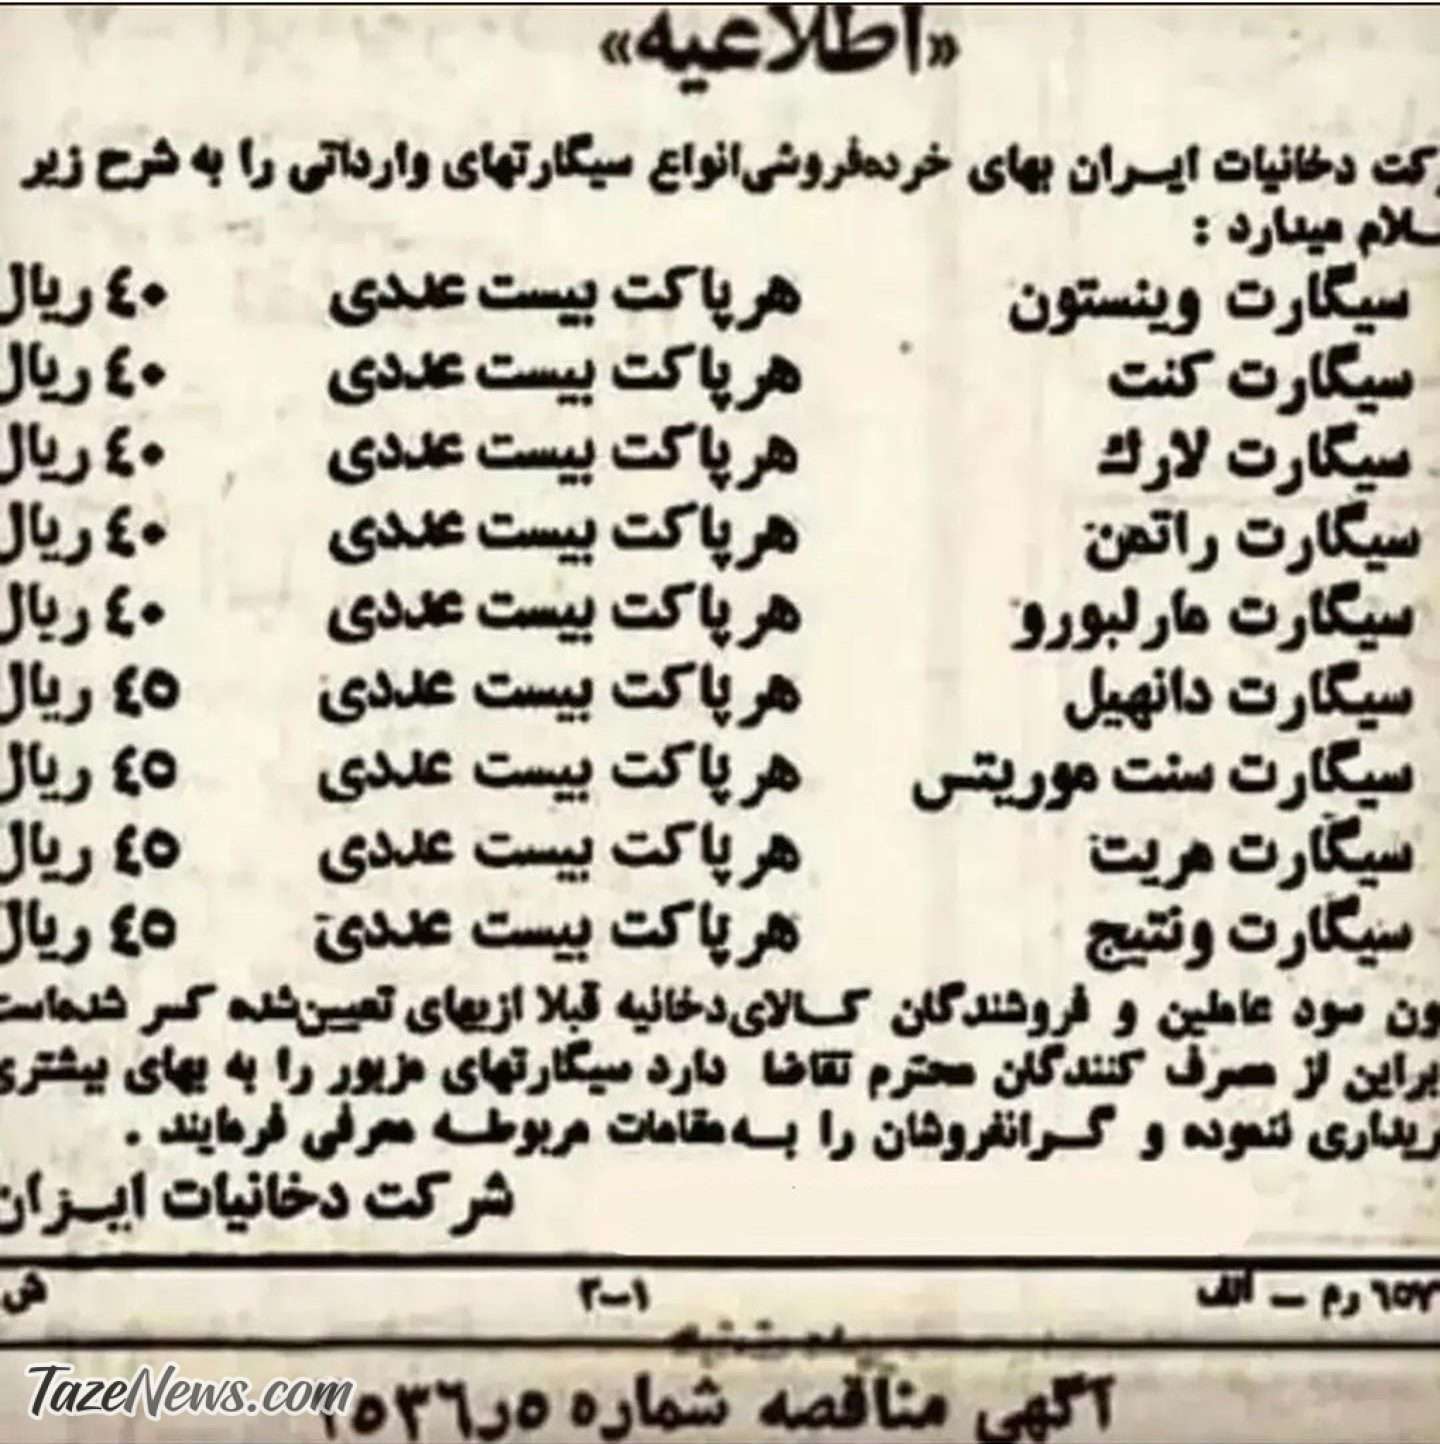 «اطلاعیه»
کت دخانیات ایران بهای خرده‌فروشی انواع سیگارتهای وارداتی را به شرح زیر
لام میدارد :
سیگارت وینستون هر پاکت بیست عددی ٤٠ ریال
سیگارت کنت هر پاکت بیست عددی ٤٠ ریال
سیگارت لارك هر پاکت بیست عددی ٤٠ ریال
سیگارت راتمن هر پاکت بیست عددی ٤٠ ریال
سیگارت مارلبورو هر پاکت بیست عددی ٤٠ ریال
سیگارت دانهیل هر پاکت بیست عددی ٤٥ ریال
سیگارت سنت موریتس هر پاکت بیست عددی ٤٥ ریال
سیگارت مریت هر پاکت بیست عددی ٤٥ ریال
سیگارت ونتیج هر پاکت بیست عددی ٤٥ ریال
ون سود عاملین و فروشندگان کالای دخانیه قبلا از بهای تعیین‌شده کسر شده‌است
براین از مصرف کنندگان محترم تقاضا دارد سیگارتهای مزبور را به بهای بیشتری
ریداری ننموده و گرانفروشان را به‌مقامات مربوطه معرفی فرمایند .
شرکت دخانیات ایران
رم – الف ۱–۲ ش
آگهی مناقصه شماره
TazeNews.com